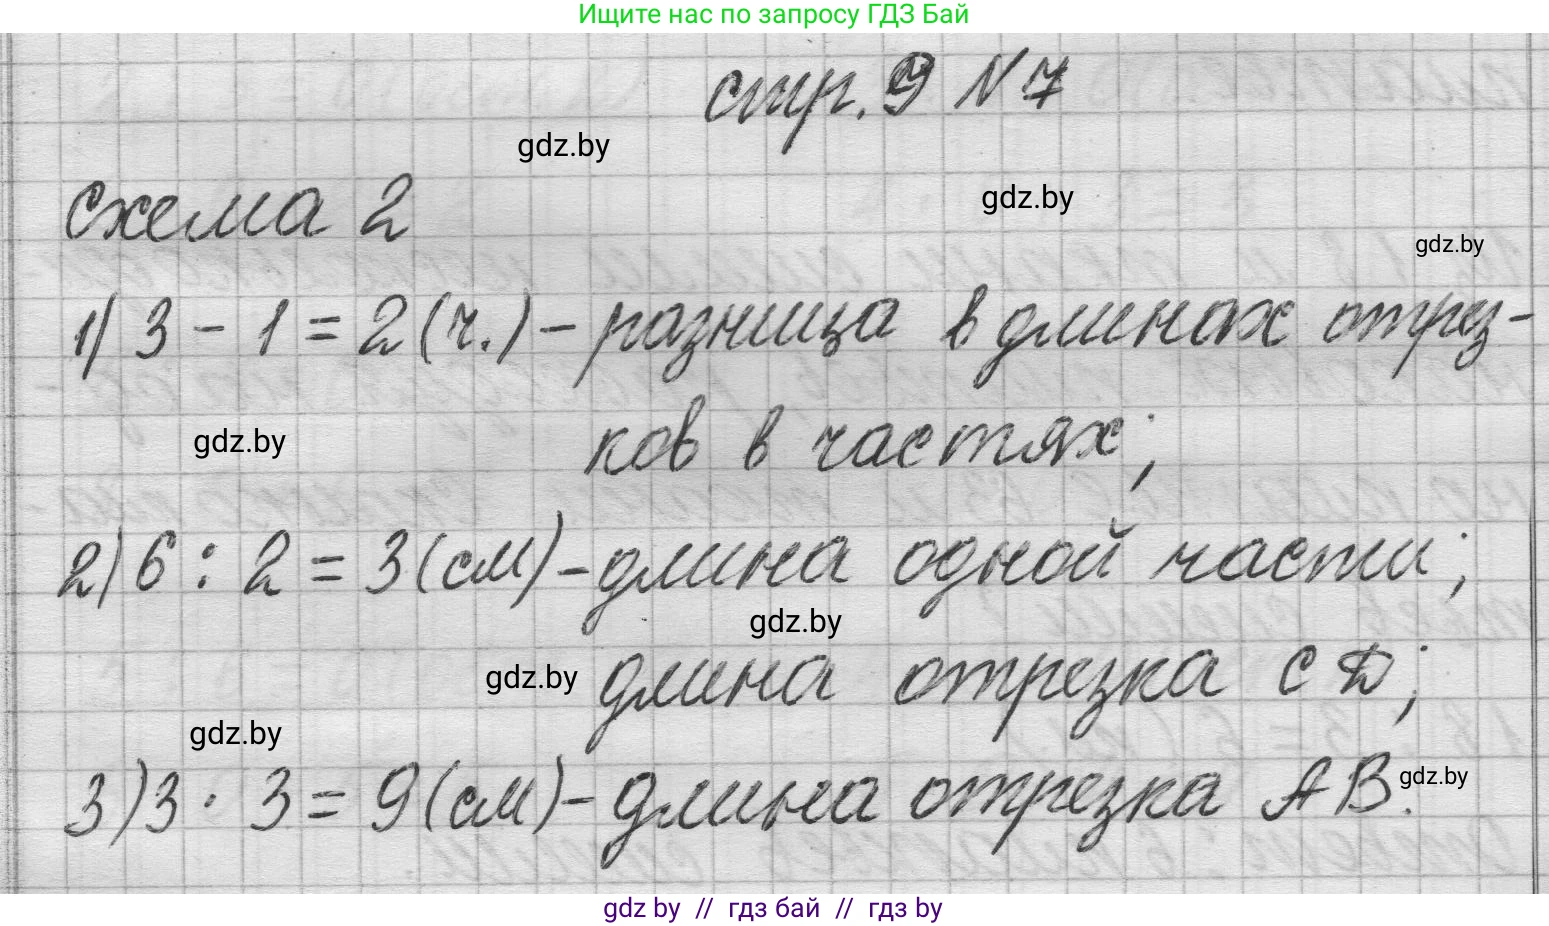 Ищите нас по запросу ГДЗ Бай
стр. 9 N 7
gdz.by
gdz.by
схема 2
gdz.by
1) 3 - 1 = 2 (ч.) - разница в длинах отрез-
ков в частях;
gdz.by
2) 6 : 2 = 3 (см) - длина одной части;
gdz.by
длина отрезка CD;
gdz.by
gdz.by
3) 3 · 3 = 9 (см) - длина отрезка AB.
gdz.by
gdz by // гдз бай // гдз by